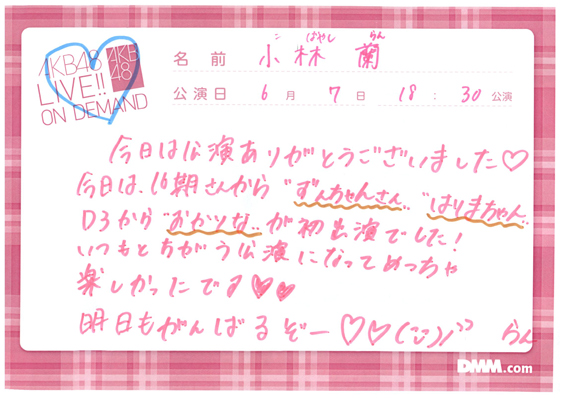 AKB48
LIVE!!
ON DEMAND
AKB
48
こ ばやし らん
名 前 小林 蘭
公演日 6 月 7 日 18 : 30 公演
今日は公演ありがとうございました♡
今日は、16期さんから"ずんちゃんさん""はりまちゃん"
D3から"おかりな"が初出演でした!
いつもとちがう公演になってめっちゃ
楽しかったです♥♥
明日もがんばるぞー♡♡
らん
DMM.com